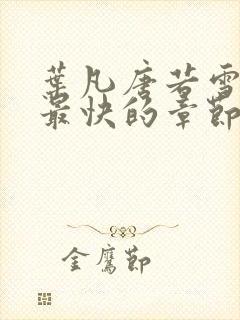 葉凡唐若雪
最快的章節
金鷹節